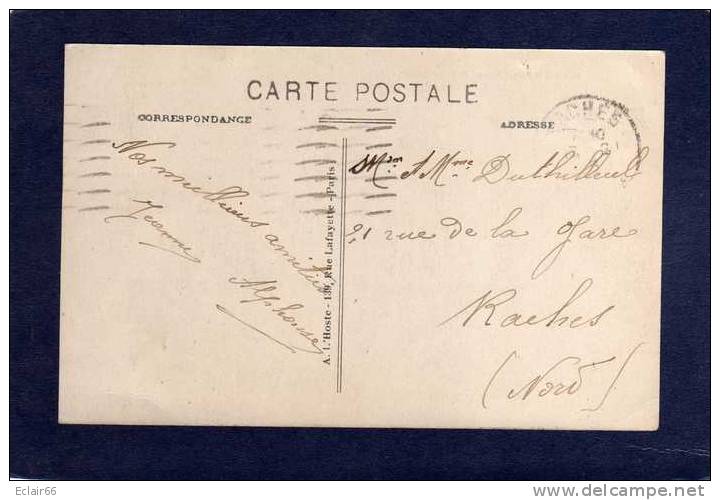 CARTE POSTALE
CORRESPONDANCE
ADRESSE
Nos meilleurs amitiés
Jeanne
Alphonse
A. L'Hoste - 139, Rue Lafayette - Paris
Mme Duthilleul
21 rue de la Gare
Raches
(Nord)
Eclair66
www.delcampe.net